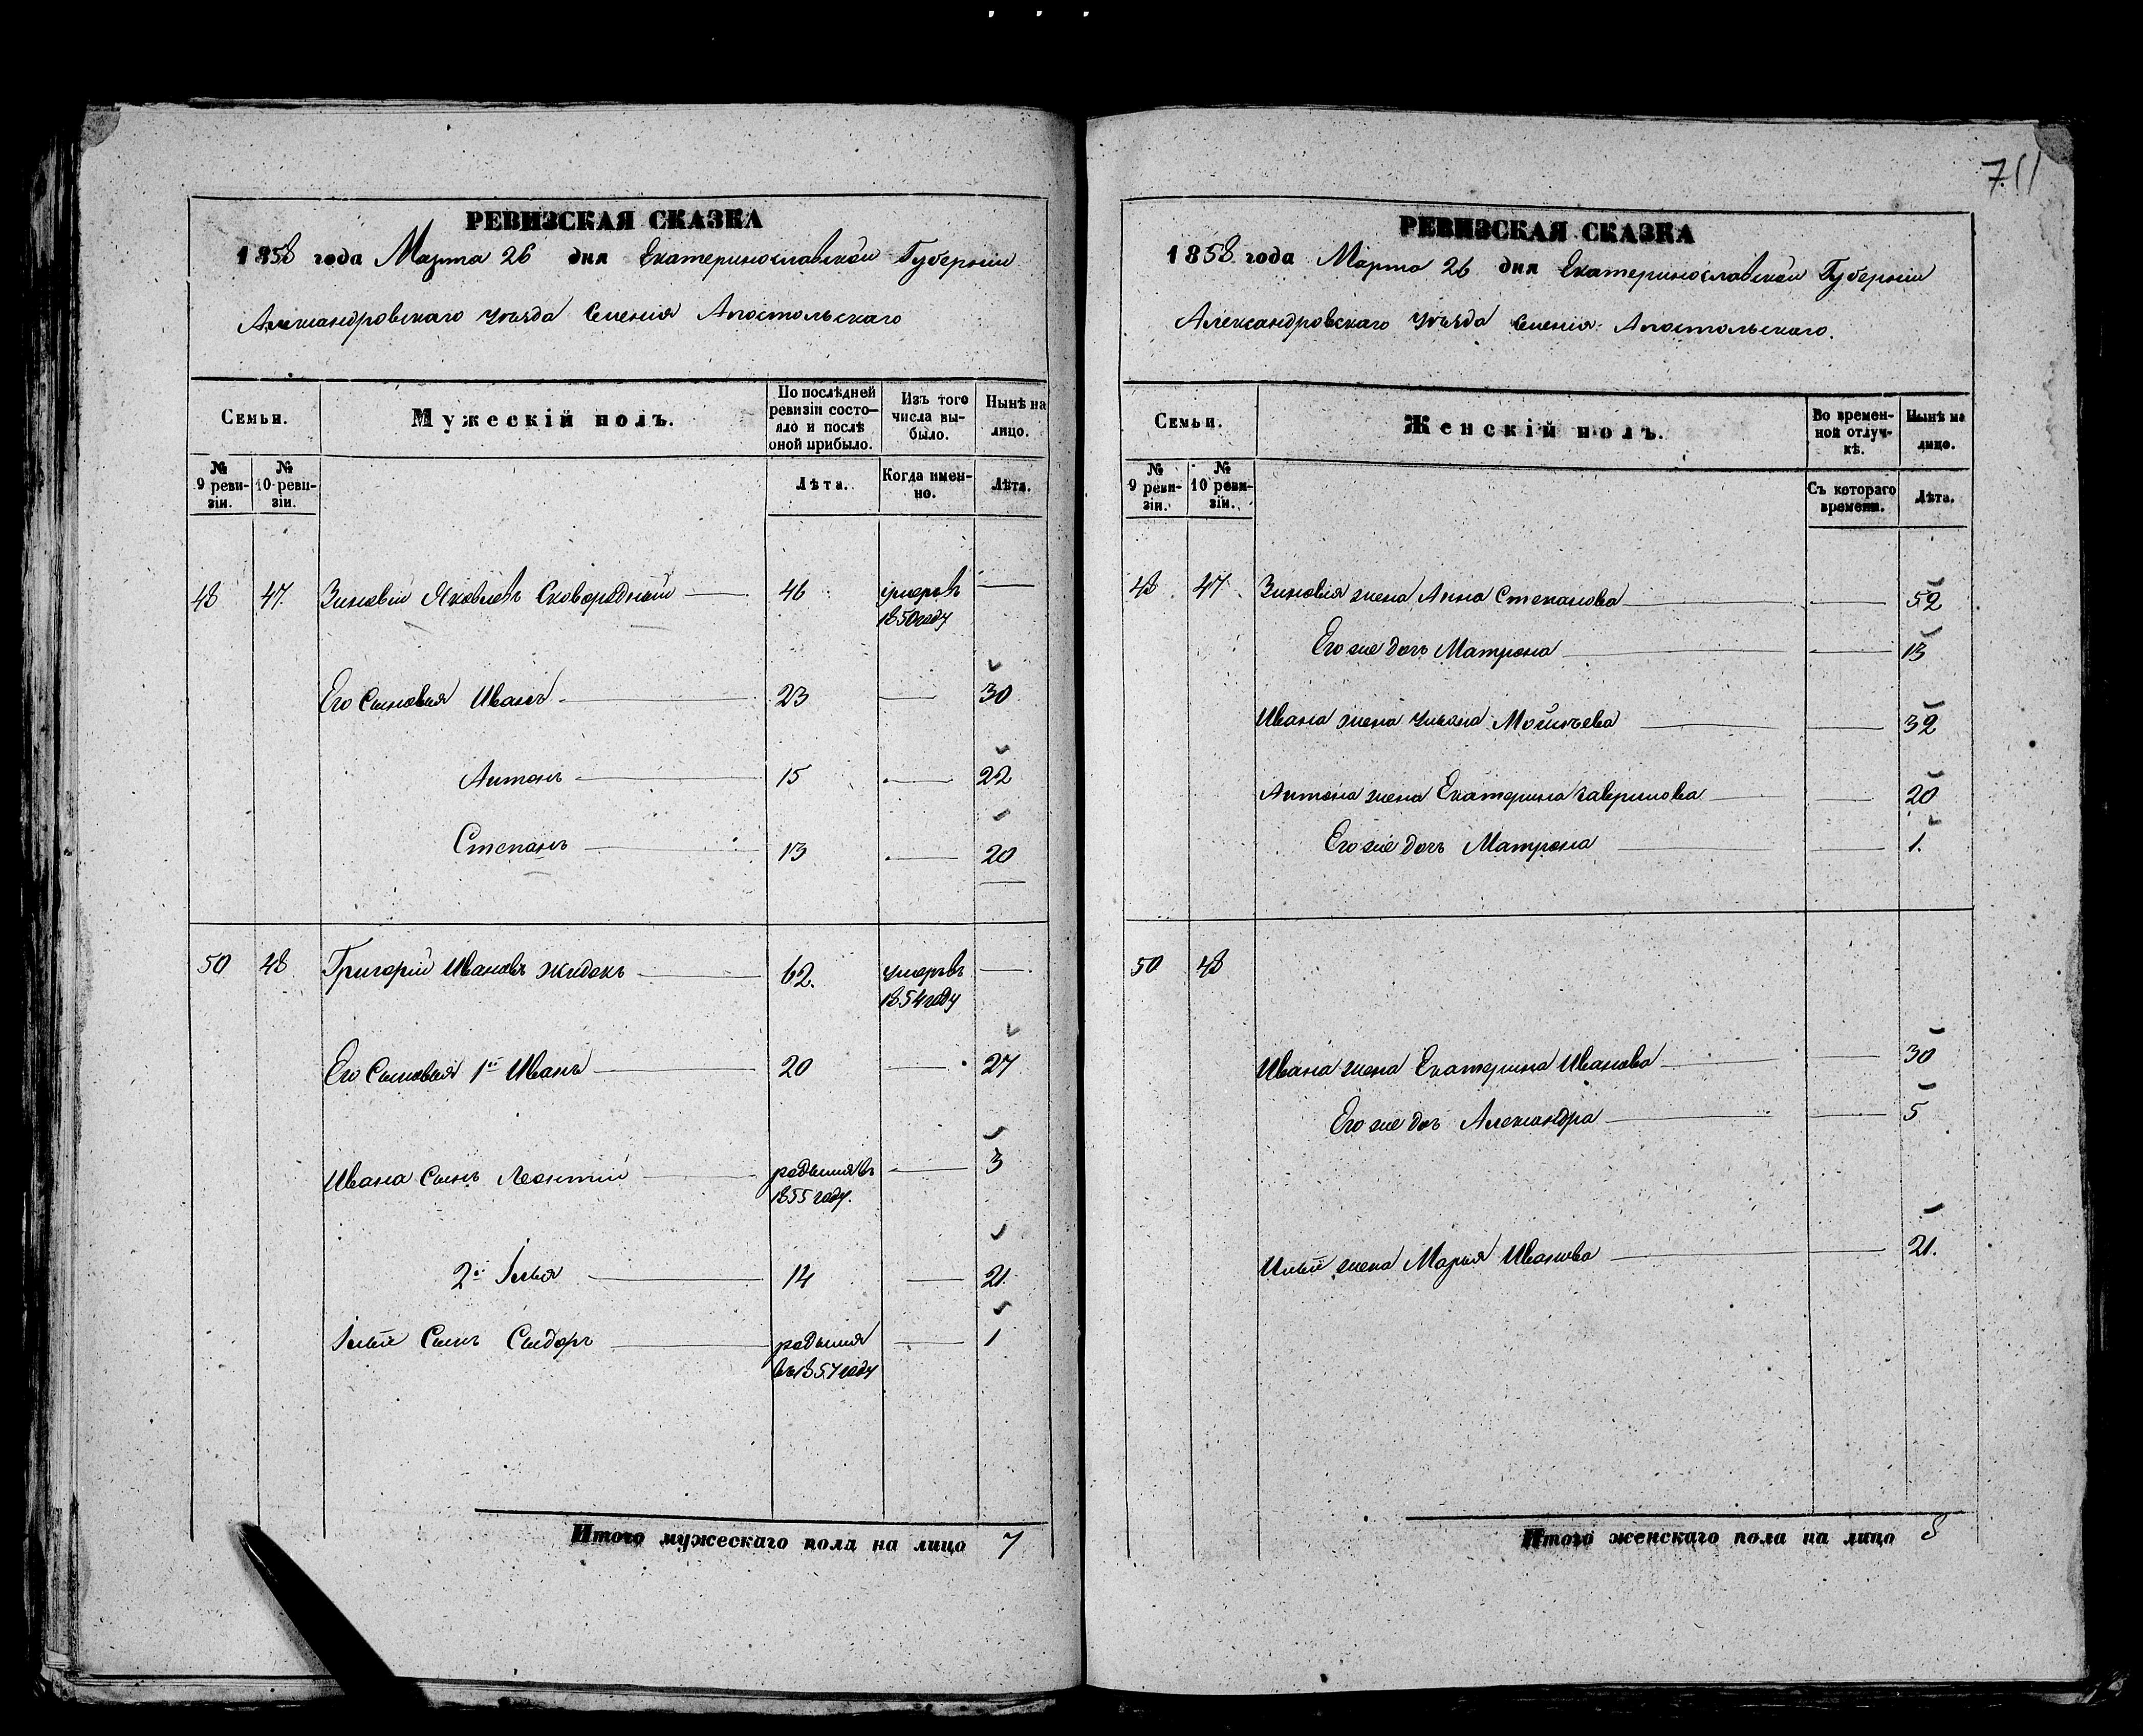 711
РЕВИЗСКАЯ СКАЗКА
1858 года Марта 26 дня Екатеринославской Губерніи
Александровскаго уѣзда Селенія Апостольскаго
Семьи.
Мужескій полъ.
По послѣдней ревизіи состояло и послѣ оной прибыло.
Изъ того числа выбыло.
Нынѣ на лицо.
№ 9 ревизіи.
№ 10 ревизіи.
Лѣта.
Когда именно.
Лѣта.
48 47. Зиновій Яковлевъ Сковородный 46 умеръ въ 1850 году
Его Сыновья Иванъ 23 30
Антонъ 15 22
Степанъ 13 20
50 48 Григорій Ивановъ Жидокъ 62. умеръ въ 1854 году
Его Сыновья 1й Иванъ 20 27
Ивана Сынъ Леонтій родился въ 1855 году. 3
2й Илья 14 21.
Ильи Сынъ Сидоръ родился въ 1857 году 1
Итого мужескаго пола на лицо 7
РЕВИЗСКАЯ СКАЗКА
1858 года Марта 26 дня Екатеринославской Губерніи
Александровскаго уѣзда Селенія Апостольскаго.
Семьи.
Женскій полъ.
Во временной отлучкѣ.
Нынѣ на лицо.
№ 9 ревизіи.
№ 10 ревизіи.
Съ котораго времени.
Лѣта.
48 47 Зиновія жена Анна Степанова 52
Его же дочь Матрона 13
Ивана жена Моѵсѣева 32
Антона жена Екатерина Гаврилова 20
Его же дочь Матрона 1.
50 48
Ивана жена Екатерина Иванова 30
Его же доч Александра 5
Ильи жена Марья Иванова 21.
Итого женскаго пола на лицо 8